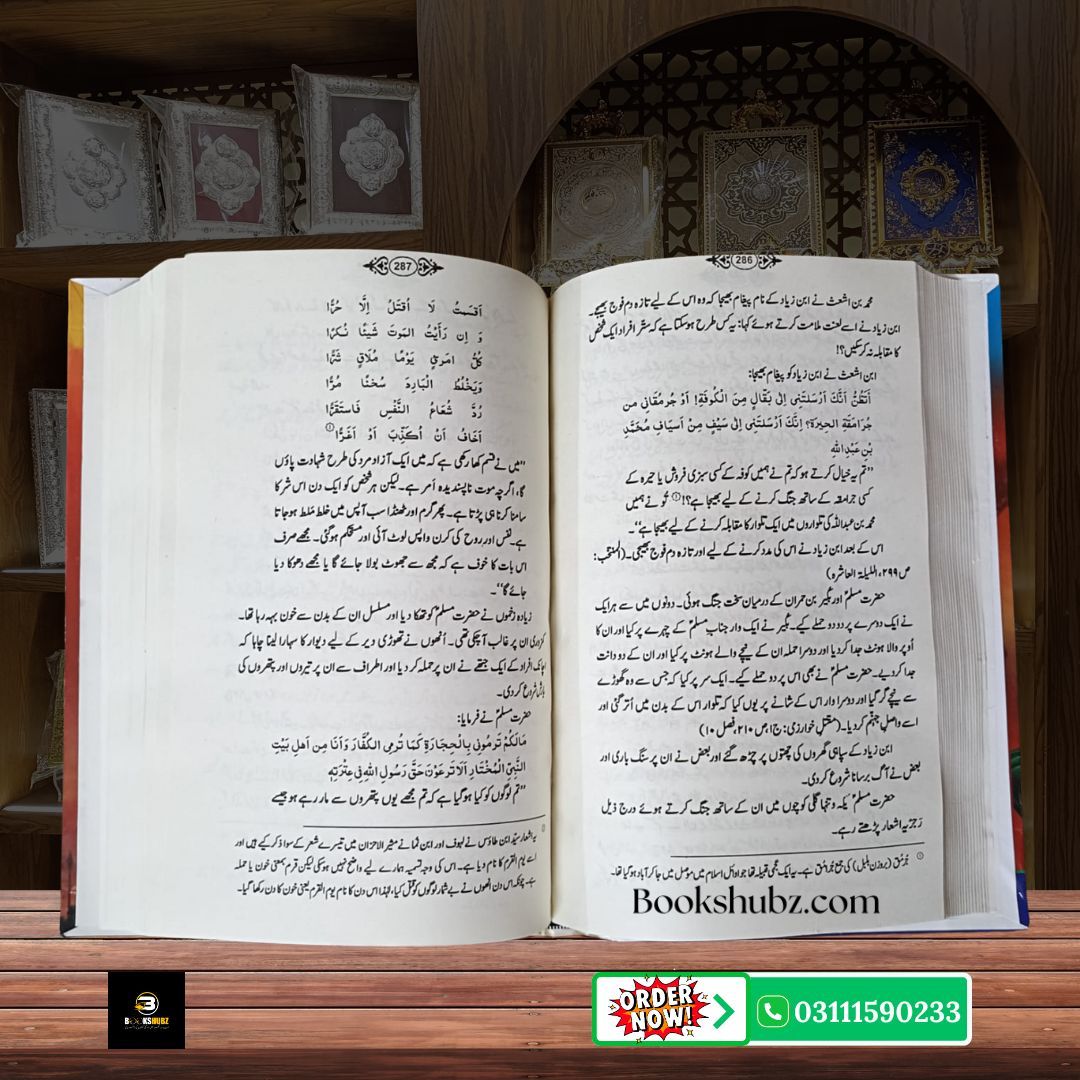 286
محمد بن اشعث نے ابن زیاد کے نام پیغام بھیجا کہ وہ اس کے لیے تازہ دم فوج بھیجے۔
ابن زیاد نے اسے لعنت ملامت کرتے ہوئے کہا: یہ کس طرح ہوسکتا ہے کہ ستّر افراد ایک شخص
کا مقابلہ نہ کرسکیں؟!
ابن اشعث نے ابن زیاد کو پیغام بھیجا:
أَتَظُنُّ أَنَّكَ أَرْسَلتَنِی اِلٰی بَقَّالٍ مِنَ الْکُوفَةِ! أَوْ جُرمُقَانِی من
جُرَامَقَةِ الحِیرَةَ؟ اِنَّكَ أَرْسَلتَنِی اِلٰی سَیْفٍ مِنْ أَسیَافِ مُحَمَّدِ
بْنِ عَبدِ اللهِ
’’تم یہ خیال کرتے ہو کہ تم نے ہمیں کوفہ کے کسی سبزی فروش یا حیرہ کے
کسی جرامقہ کے ساتھ جنگ کرنے کے لیے بھیجا ہے؟!① تُو نے ہمیں
محمد بن عبداللہ کی تلواروں میں ایک تلوار کا مقابلہ کرنے کے لیے بھیجا ہے‘‘۔
اس کے بعد ابن زیاد نے اس کی مدد کرنے کے لیے اور تازہ دم فوج بھیجی۔ (المنتخب:
ص۲۹۹، اللیلۃ العاشرہ)
حضرت مسلمؑ اور بُکیر بن حمران کے درمیان سخت جنگ ہوئی۔ دونوں میں سے ہر ایک
نے ایک دوسرے پر دو دو حملے کیے۔ بُکیر نے ایک وار جناب مسلمؑ کے چہرے پر کیا اور ان کا
اُوپر والا ہونٹ جدا کر دیا اور دوسرا حملہ ان کے نیچے والے ہونٹ پر کیا اور ان کے دو دانت
جدا کر دیے۔ حضرت مسلمؑ نے بھی اس پر دو حملے کیے۔ ایک سر پر کیا کہ جس سے وہ گھوڑے
سے نیچے گر گیا اور دوسرا وار اس کے شانے پر یوں کیا کہ تلوار اس کے بدن میں اُتر گئی اور
اسے واصلِ جہنم کر دیا۔ (مقتل خوارزمی: ج۱، ص۲۱۰، فصل ۱۰)
ابن زیاد کے سپاہی گھروں کی چھتوں پر چڑھ گئے اور بعض نے ان پر سنگ باری اور
بعض نے آگ برسانا شروع کر دی۔
حضرت مسلمؑ یکہ و تنہا گلی کوچوں میں ان کے ساتھ جنگ کرتے ہوئے درج ذیل
رَجزیہ اشعار پڑھتے رہے۔
① جُرمُق (بروزن بلبل) کی جمع جُرمُق ہے۔ یہ ایک عجمی قبیلہ تھا جو اوائل اسلام میں موصل میں جا کر آباد ہو گیا تھا۔
Bookshubz.com
287
اَقسَمتُ لَا اُقتَلُ اِلَّا حُرًّا
وَ اِن رَأَیْتُ المَوتَ شَیئًا نُکرًا
کُلُّ امرِیٍٔ یَوْمًا مُلَاقٍ شَرًّا
وَیَخْلُطُ الْبَارِدَ سُخنًا مُرًّا
رُدَّ شُعَاعُ النَّفْسِ فَاستَقَرَّا
اَخَافُ أَنْ اُکَذَّبَ اَوْ اَغَرَّا①
’’میں نے قسم کھا رکھی ہے کہ میں ایک آزاد مرد کی طرح شہادت پاؤں
گا، اگرچہ موت ناپسندیدہ اَمر ہے۔ لیکن ہر شخص کو ایک دن اس شر کا
سامنا کرنا ہی پڑتا ہے۔ پھر گرم اور ٹھنڈا سب آپس میں خلط مَلط ہو جاتا
ہے۔ نفس اور روح کی کرن واپس لوٹ آئی اور مستحکم ہو گئی۔ مجھے صرف
اس بات کا خوف ہے کہ مجھ سے جھوٹ بولا جائے گا یا مجھے دھوکا دیا
جائے گا‘‘۔
زیادہ زخموں نے حضرت مسلمؑ کو تھکا دیا اور مسلسل ان کے بدن سے خون بہہ رہا تھا۔
کمزوری ان پر غالب آ چکی تھی۔ اُنھوں نے تھوڑی دیر کے لیے دیوار کا سہارا لینا چاہا کہ
اچانک افراد کے ایک جتھے نے ان پر حملہ کر دیا اور اطراف سے ان پر تیروں اور پتھروں کی
بارش شروع کر دی۔
حضرت مسلمؑ نے فرمایا:
مَالَکُمْ تَرمُونِی بِالْحِجَارَةِ کَمَا تُرمِی الکُفَّارَ وَأَنَا مِن اَهلِ بَیْتِ
النَّبِیِّ الْمُخْتَارِ اَلَا تَرعَوْنَ حَقَّ رَسُولِ اللهِ فِی عِتْرَتِهِ
’’تم لوگوں کو کیا ہو گیا ہے کہ تم مجھے یوں پتھروں سے مار رہے ہو جیسے
① یہ اشعار سیّد ابن طاؤس نے لہوف اور ابن نما نے مثیر الاحزان میں تیسرے شعر کے سوا ذکر کیے ہیں اور
اسے یوم القرم کا نام دیا ہے۔ اس کی وجہ تسمیہ ہمارے لیے واضح نہیں ہو سکی لیکن قرم بمعنی خون یا حملہ
ہے۔ چونکہ اس دن اُنھوں نے بے شمار لوگوں کو قتل کیا، لہٰذا اس دن کا نام یوم القرم یعنی خون کا دن رکھا گیا۔
BOOKSHUBZ
ORDER
NOW!
03111590233